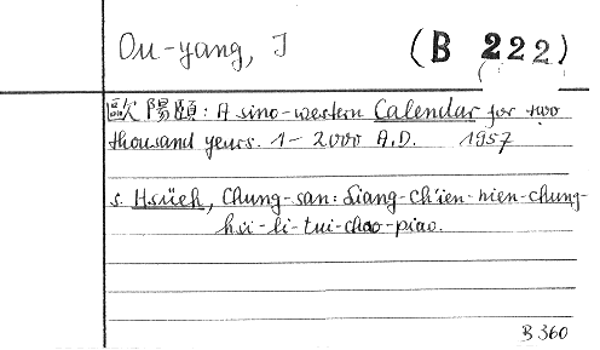 Ou-yang, I (B 222)
歐陽頤: A sino-western Calendar for two
thousand years. 1-2000 A.D. 1957
s. Hsüeh, Chung-san: Liang-ch'ien-nien-chung-
hsi-li-tui-chao-piao.
B 360